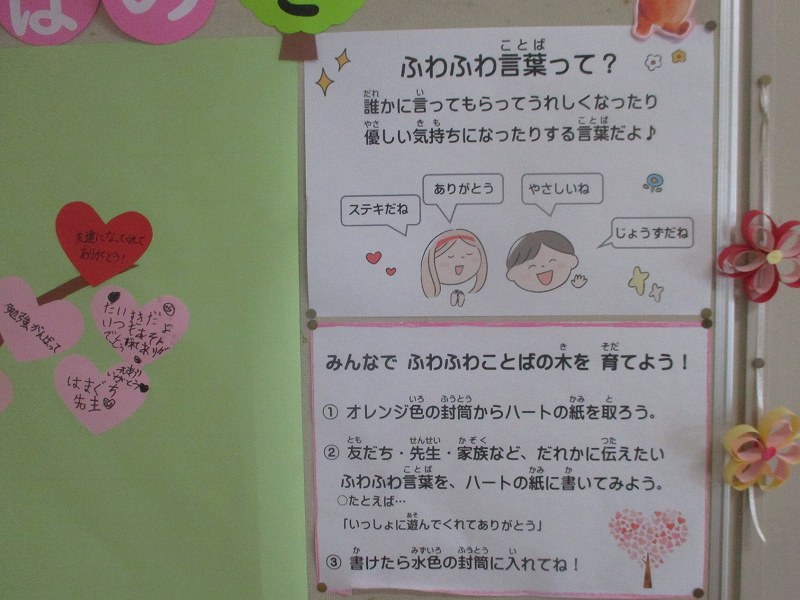 ばのき
ふわふわ言葉って？
誰かに言ってもらってうれしくなったり
優しい気持ちになったりする言葉だよ♪
ステキだね
ありがとう
やさしいね
じょうずだね
みんなで ふわふわことばの木を 育てよう！
① オレンジ色の封筒からハートの紙を取ろう。
② 友だち・先生・家族など、だれかに伝えたい
ふわふわ言葉を、ハートの紙に書いてみよう。
○たとえば…
「いっしょに遊んでくれてありがとう」
③ 書けたら水色の封筒に入れてね！
友達になってくれて
ありがとう！
勉強がんばって
だいすきだよ
いつもあそん
でくれてありが
とう
いつもあり
がとう
はまぐち
先生